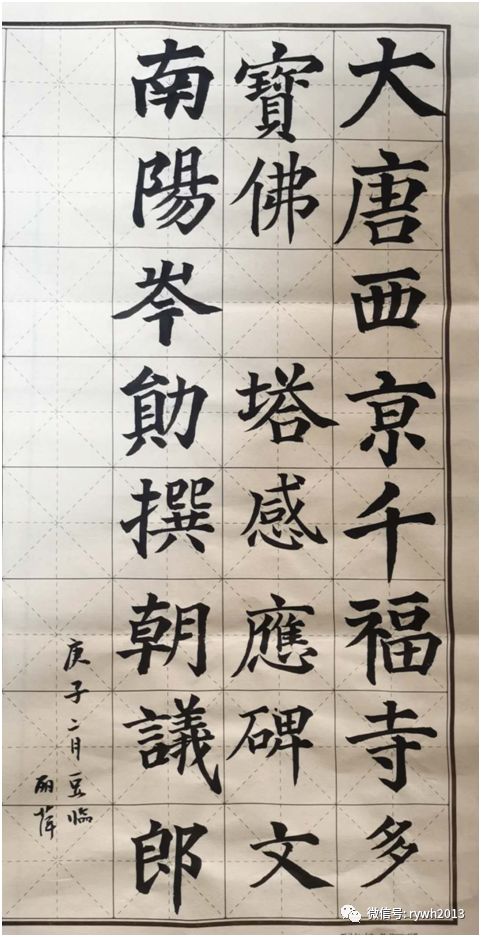 大唐西亰千福寺多
寶佛塔感應碑文
南陽岑勛撰朝議郎
庚子二月豆臨
丽萍
微信号: rywh2013